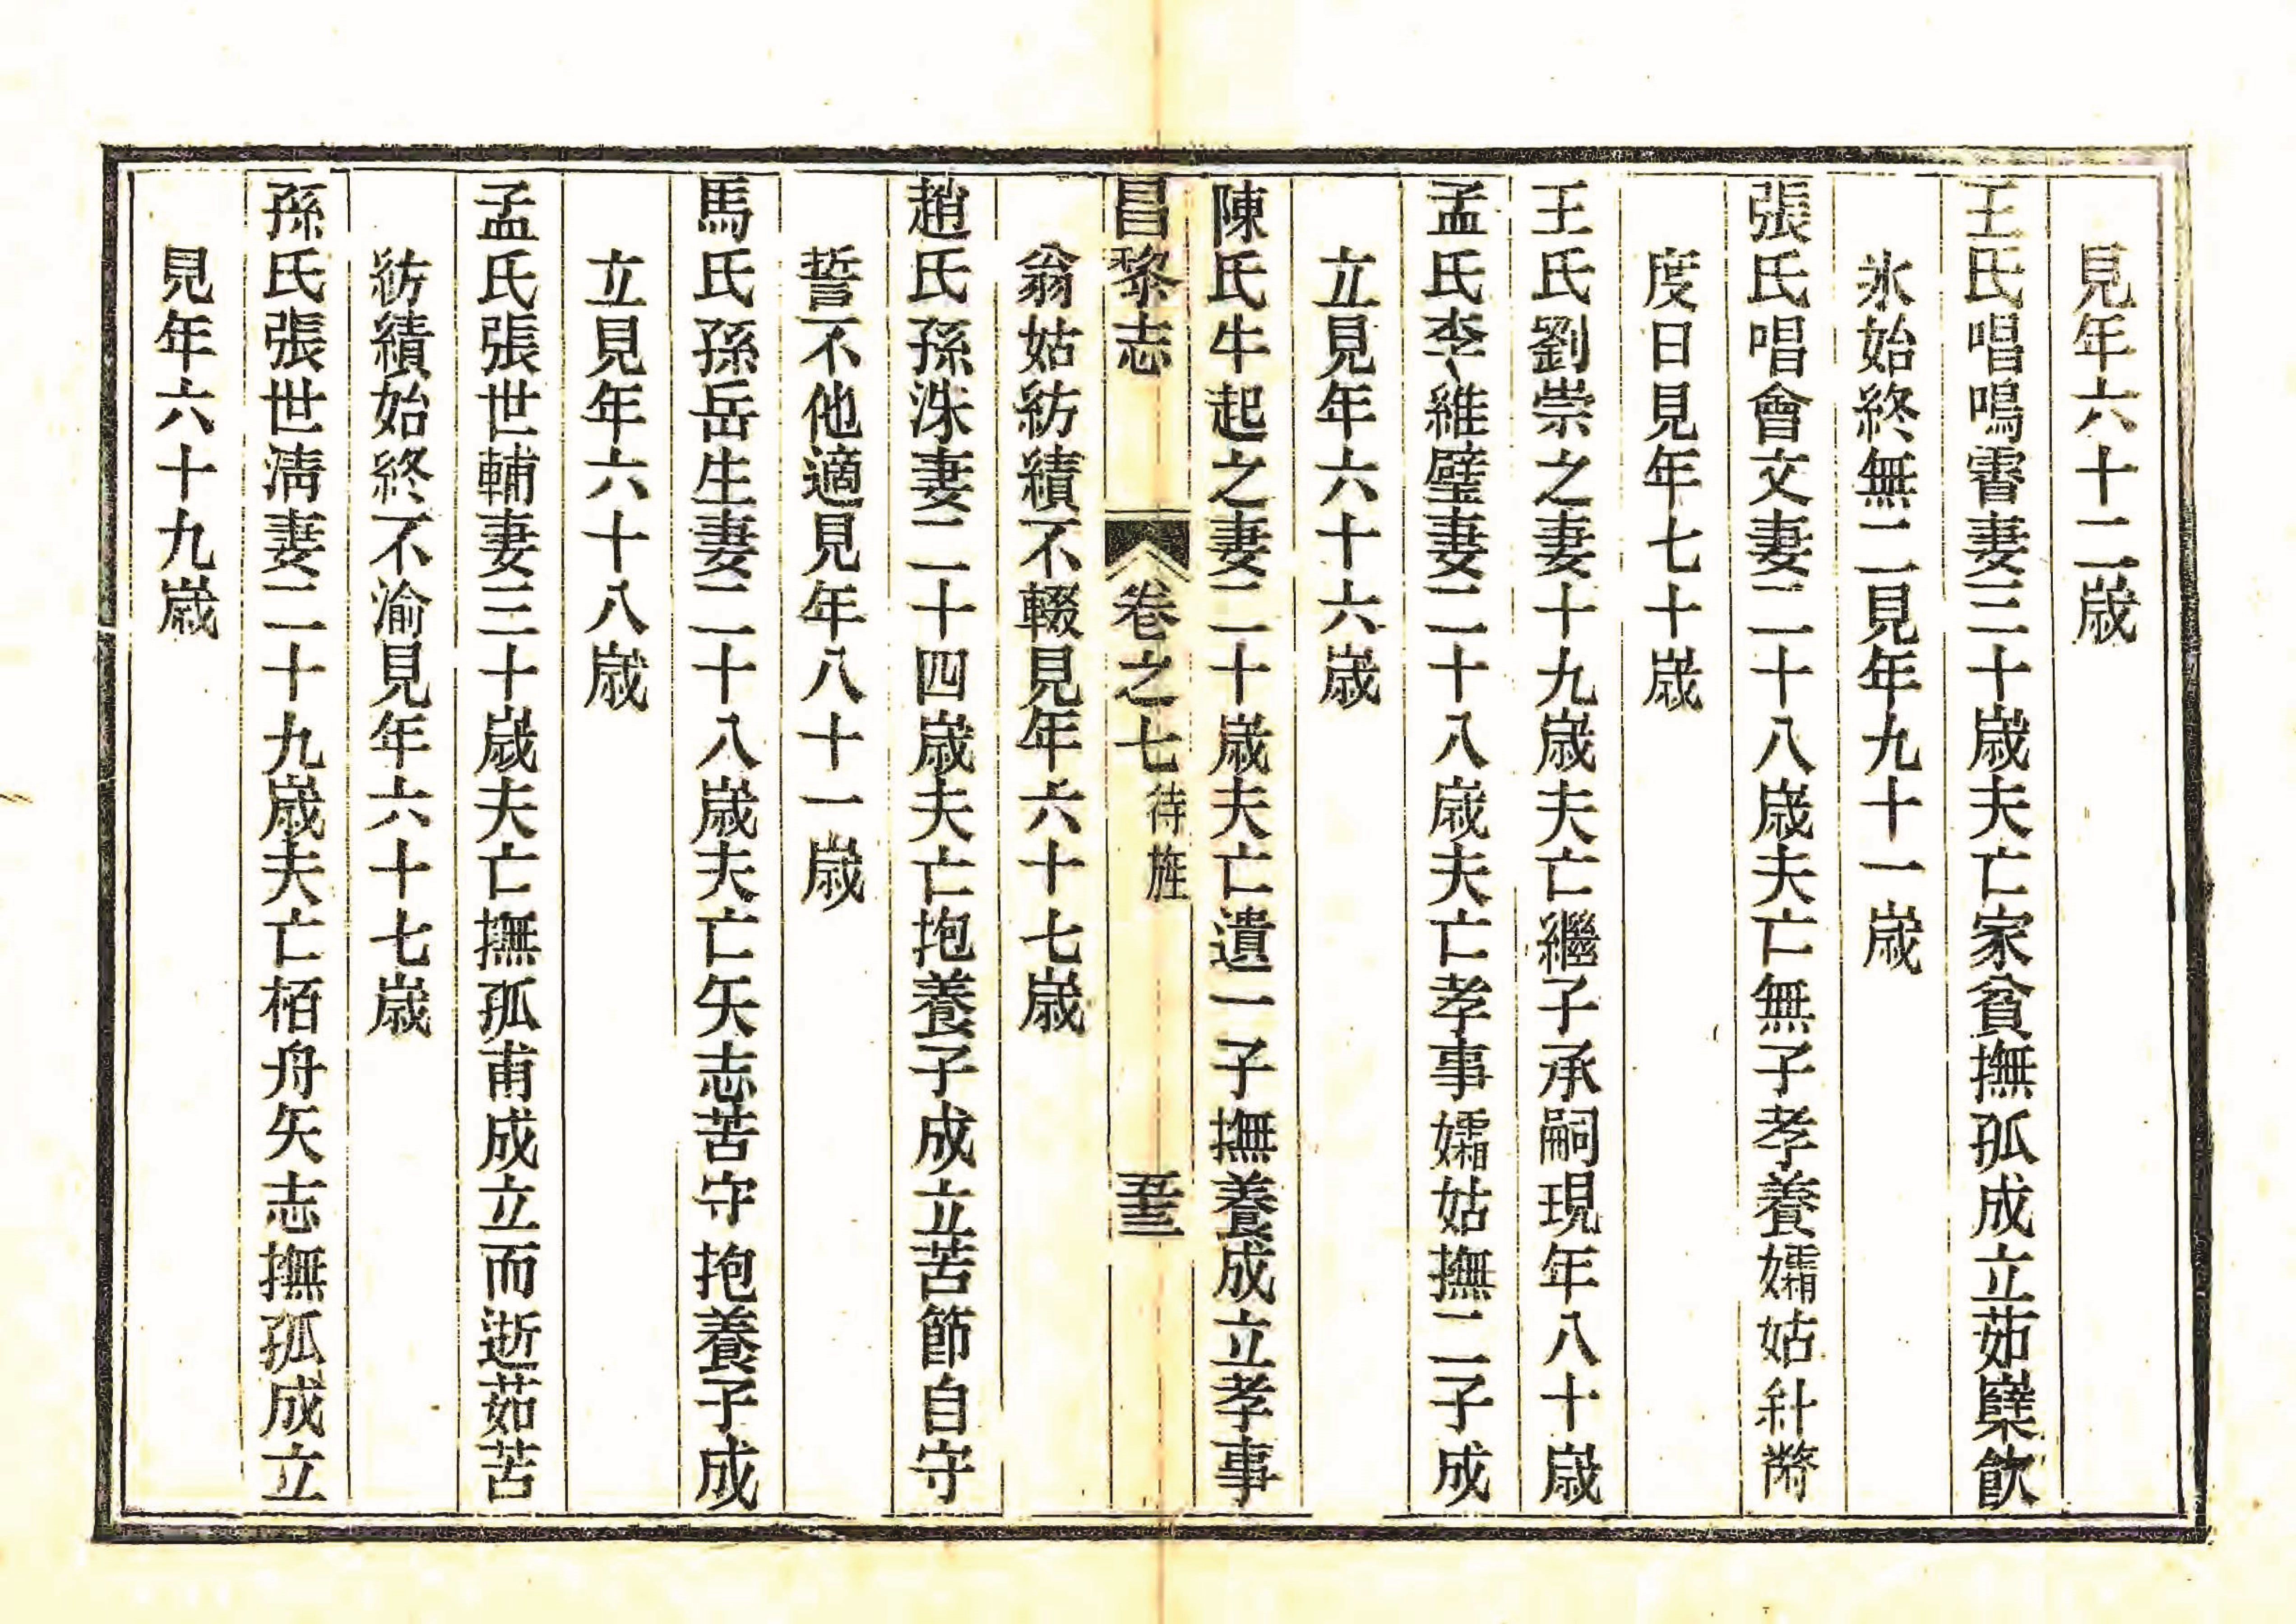 見年六十二歲
王氏唱鳴霄妻三十歲夫亡家貧撫孤成立茹櫱飲
氷始終無二見年九十一歲
張氏唱會文妻二十八歲夫亡無子孝養孀姑針黹
度日見年七十歲
王氏劉崇之妻十九歲夫亡繼子承嗣現年八十歲
孟氏李維璧妻二十八歲夫亡孝事孀姑撫二子成
立見年六十六歲
陳氏牛起之妻二十歲夫亡遺一子撫養成立孝事
昌黎志 卷之七 待旌 五十三
翁姑紡績不輟見年六十七歲
趙氏孫洙妻二十四歲夫亡抱養子成立苦節自守
誓不他適見年八十一歲
馬氏孫岳生妻二十八歲夫亡矢志苦守抱養子成
立見年六十八歲
孟氏張世輔妻三十歲夫亡撫孤甫成立而逝茹苦
紡績始終不渝見年六十七歲
孫氏張世淸妻二十九歲夫亡栢舟矢志撫孤成立
見年六十九歲